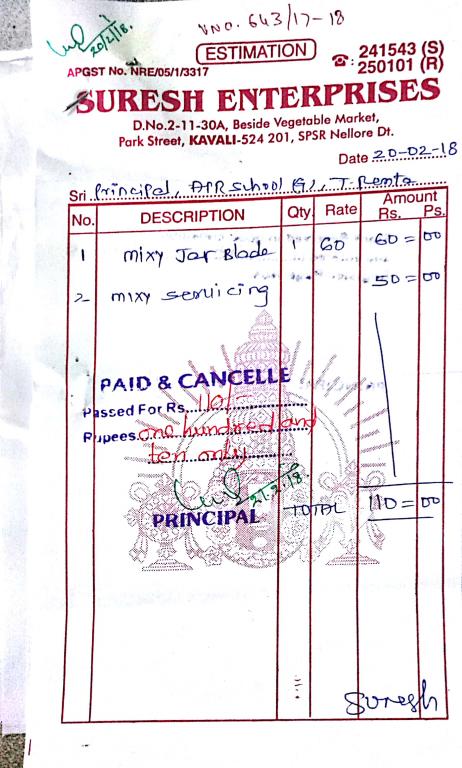 VNO. 643/17-18
20/2/18.
ESTIMATION
☎: 241543 (S)
250101 (R)
APGST No. NRE/05/1/3317
SURESH ENTERPRISES
D.No.2-11-30A, Beside Vegetable Market,
Park Street, KAVALI-524 201, SPSR Nellore Dt.
Date 20-02-18
Sri Principal, APR School G),
No. DESCRIPTION Qty. Rate Amount
Rs. Ps.
1 mixy Jar Blade 1 60 60=00
2 mixy servicing 50=00
PAID & CANCELLE
Passed For Rs. 110/-
Rupees. one hundred and
ten only
21.2.18.
PRINCIPAL
TOTAL 110=00
Suresh